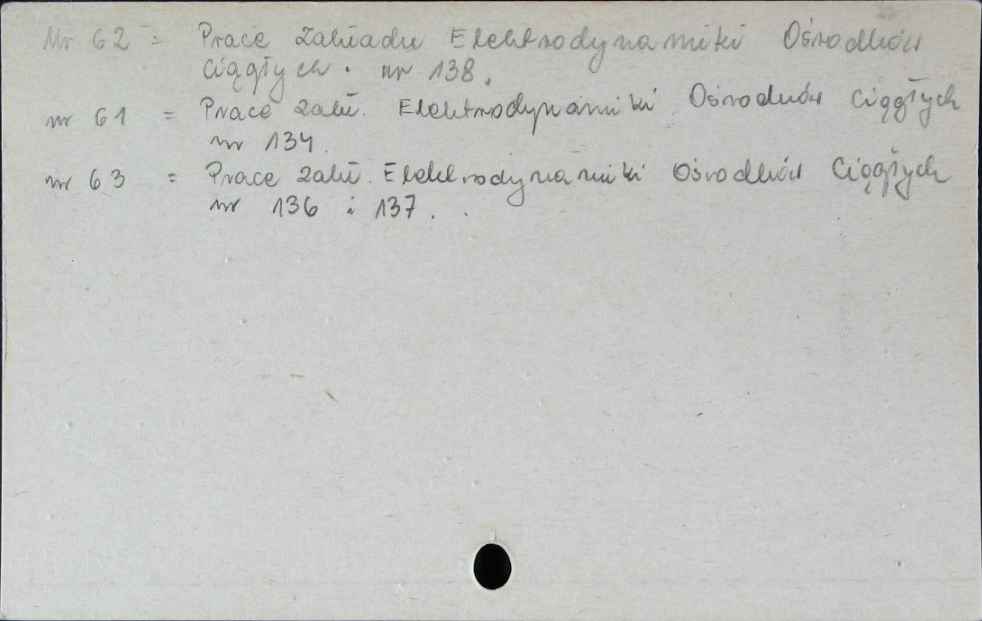 Nr 62 = Prace Zakładu Elektrodynamiki Ośrodków
Ciągłych. nr 138.
nr 61 = Prace Zakł. Elektrodynamiki Ośrodków Ciągłych
nr 134.
nr 63 = Prace Zakł. Elektrodynamiki Ośrodków Ciągłych
nr 136 i 137.